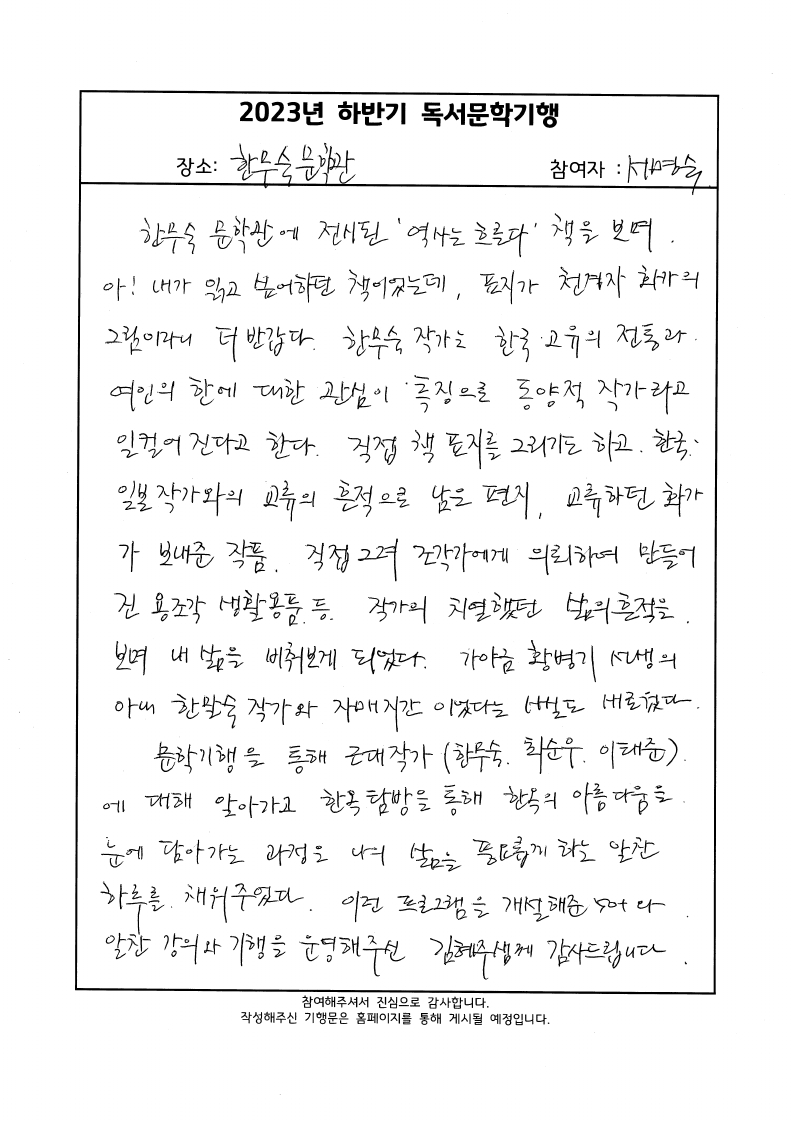 2023년 하반기 독서문학기행
장소: 한무숙문학관 참여자 : 서명숙
한무숙 문학관에 전시된 '역사는 흐른다' 책을 보며.
아! 내가 읽고 싶어하던 책이었는데, 표지가 천경자 화가의
그림이라니 더 반갑다. 한무숙 작가는 한국 고유의 전통과
여인의 한에 대한 관심이 특징으로 동양적 작가라고
일컬어 진다고 한다. 직접 책 표지를 그리기도 하고. 한국.
일본 작가와의 교류의 흔적으로 남은 편지, 교류하던 화가
가 보내준 작품. 직접 그려 조각가에게 의뢰하여 만들어
진 용조각 생활용품.등. 작가의 치열했던 삶의 흔적을.
보며 내 삶을 비춰보게 되었다. 가야금 황병기 선생의
아내 한말숙 작가와 자매지간 이었다는 사실도 새로웠다.
문학기행을 통해 근대작가 (한무숙. 최순우. 이태준).
에 대해 알아가고 한옥탐방을 통해 한옥의 아름다움을.
눈에 담아가는 과정은 나의 삶을 풍요롭게 하는 알찬
하루를. 채워주었다. 이런 프로그램을 개설해준 50+ 와
알찬 강의와 기행을 운영해주신 김혜주샘께 감사드립니다.
참여해주셔서 진심으로 감사합니다.
작성해주신 기행문은 홈페이지를 통해 게시될 예정입니다.